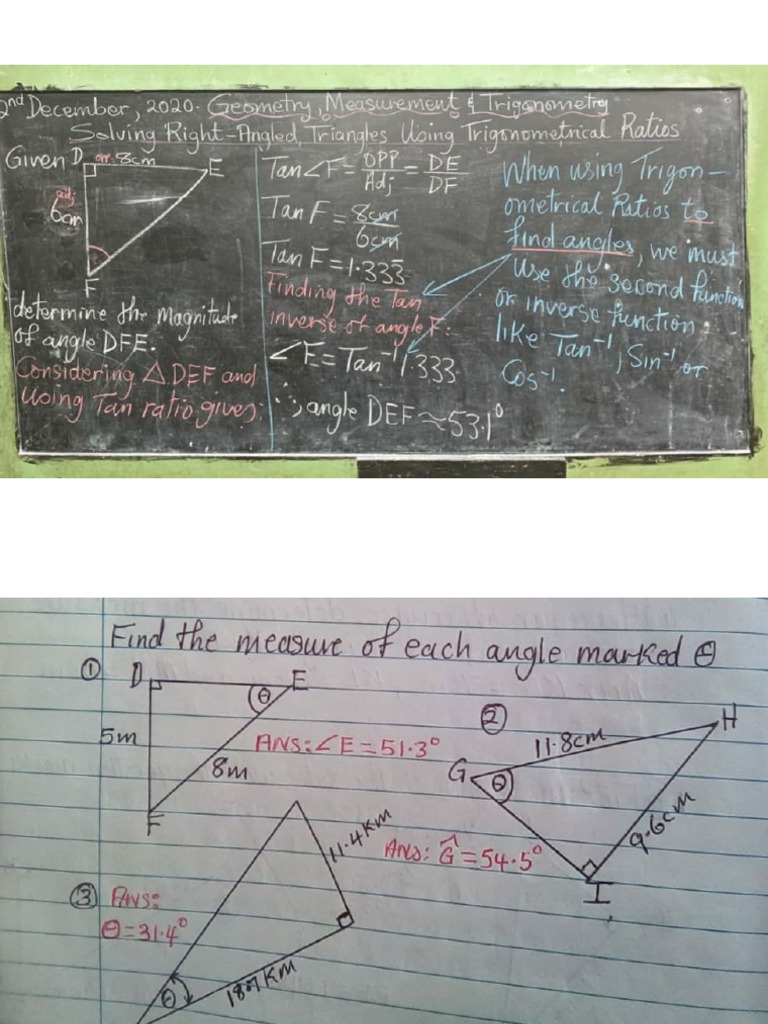 2nd December, 2020. Geometry, Measurement & Trigonometry
Solving Right-Angled Triangles Using Trigonometrical Ratios
Given D opp. 8cm E
adj
6cm
F
determine the magnitude
of angle DFE.
Considering △DEF and
Using Tan ratio gives:
Tan∠F = OPP/Adj = DE/DF
Tan F = 8cm/6cm
Tan F = 1.333
Finding the Tan
inverse of angle F:
∠E = Tan⁻¹ 1.333
∴, angle DEF ≈ 53.1°
When using Trigon-
ometrical Ratios to
find angles, we must
Use the second function
or inverse function
like Tan⁻¹, Sin⁻¹ or
Cos⁻¹.
Find the measure of each angle marked θ
① D θ E
5m
8m
F
ANS: ∠E = 51.3°
② H
11.8cm
G θ
9.6cm
I
ANS: Ĝ = 54.5°
③ ANS:
θ = 31.4°
11.4 Km
θ
Km